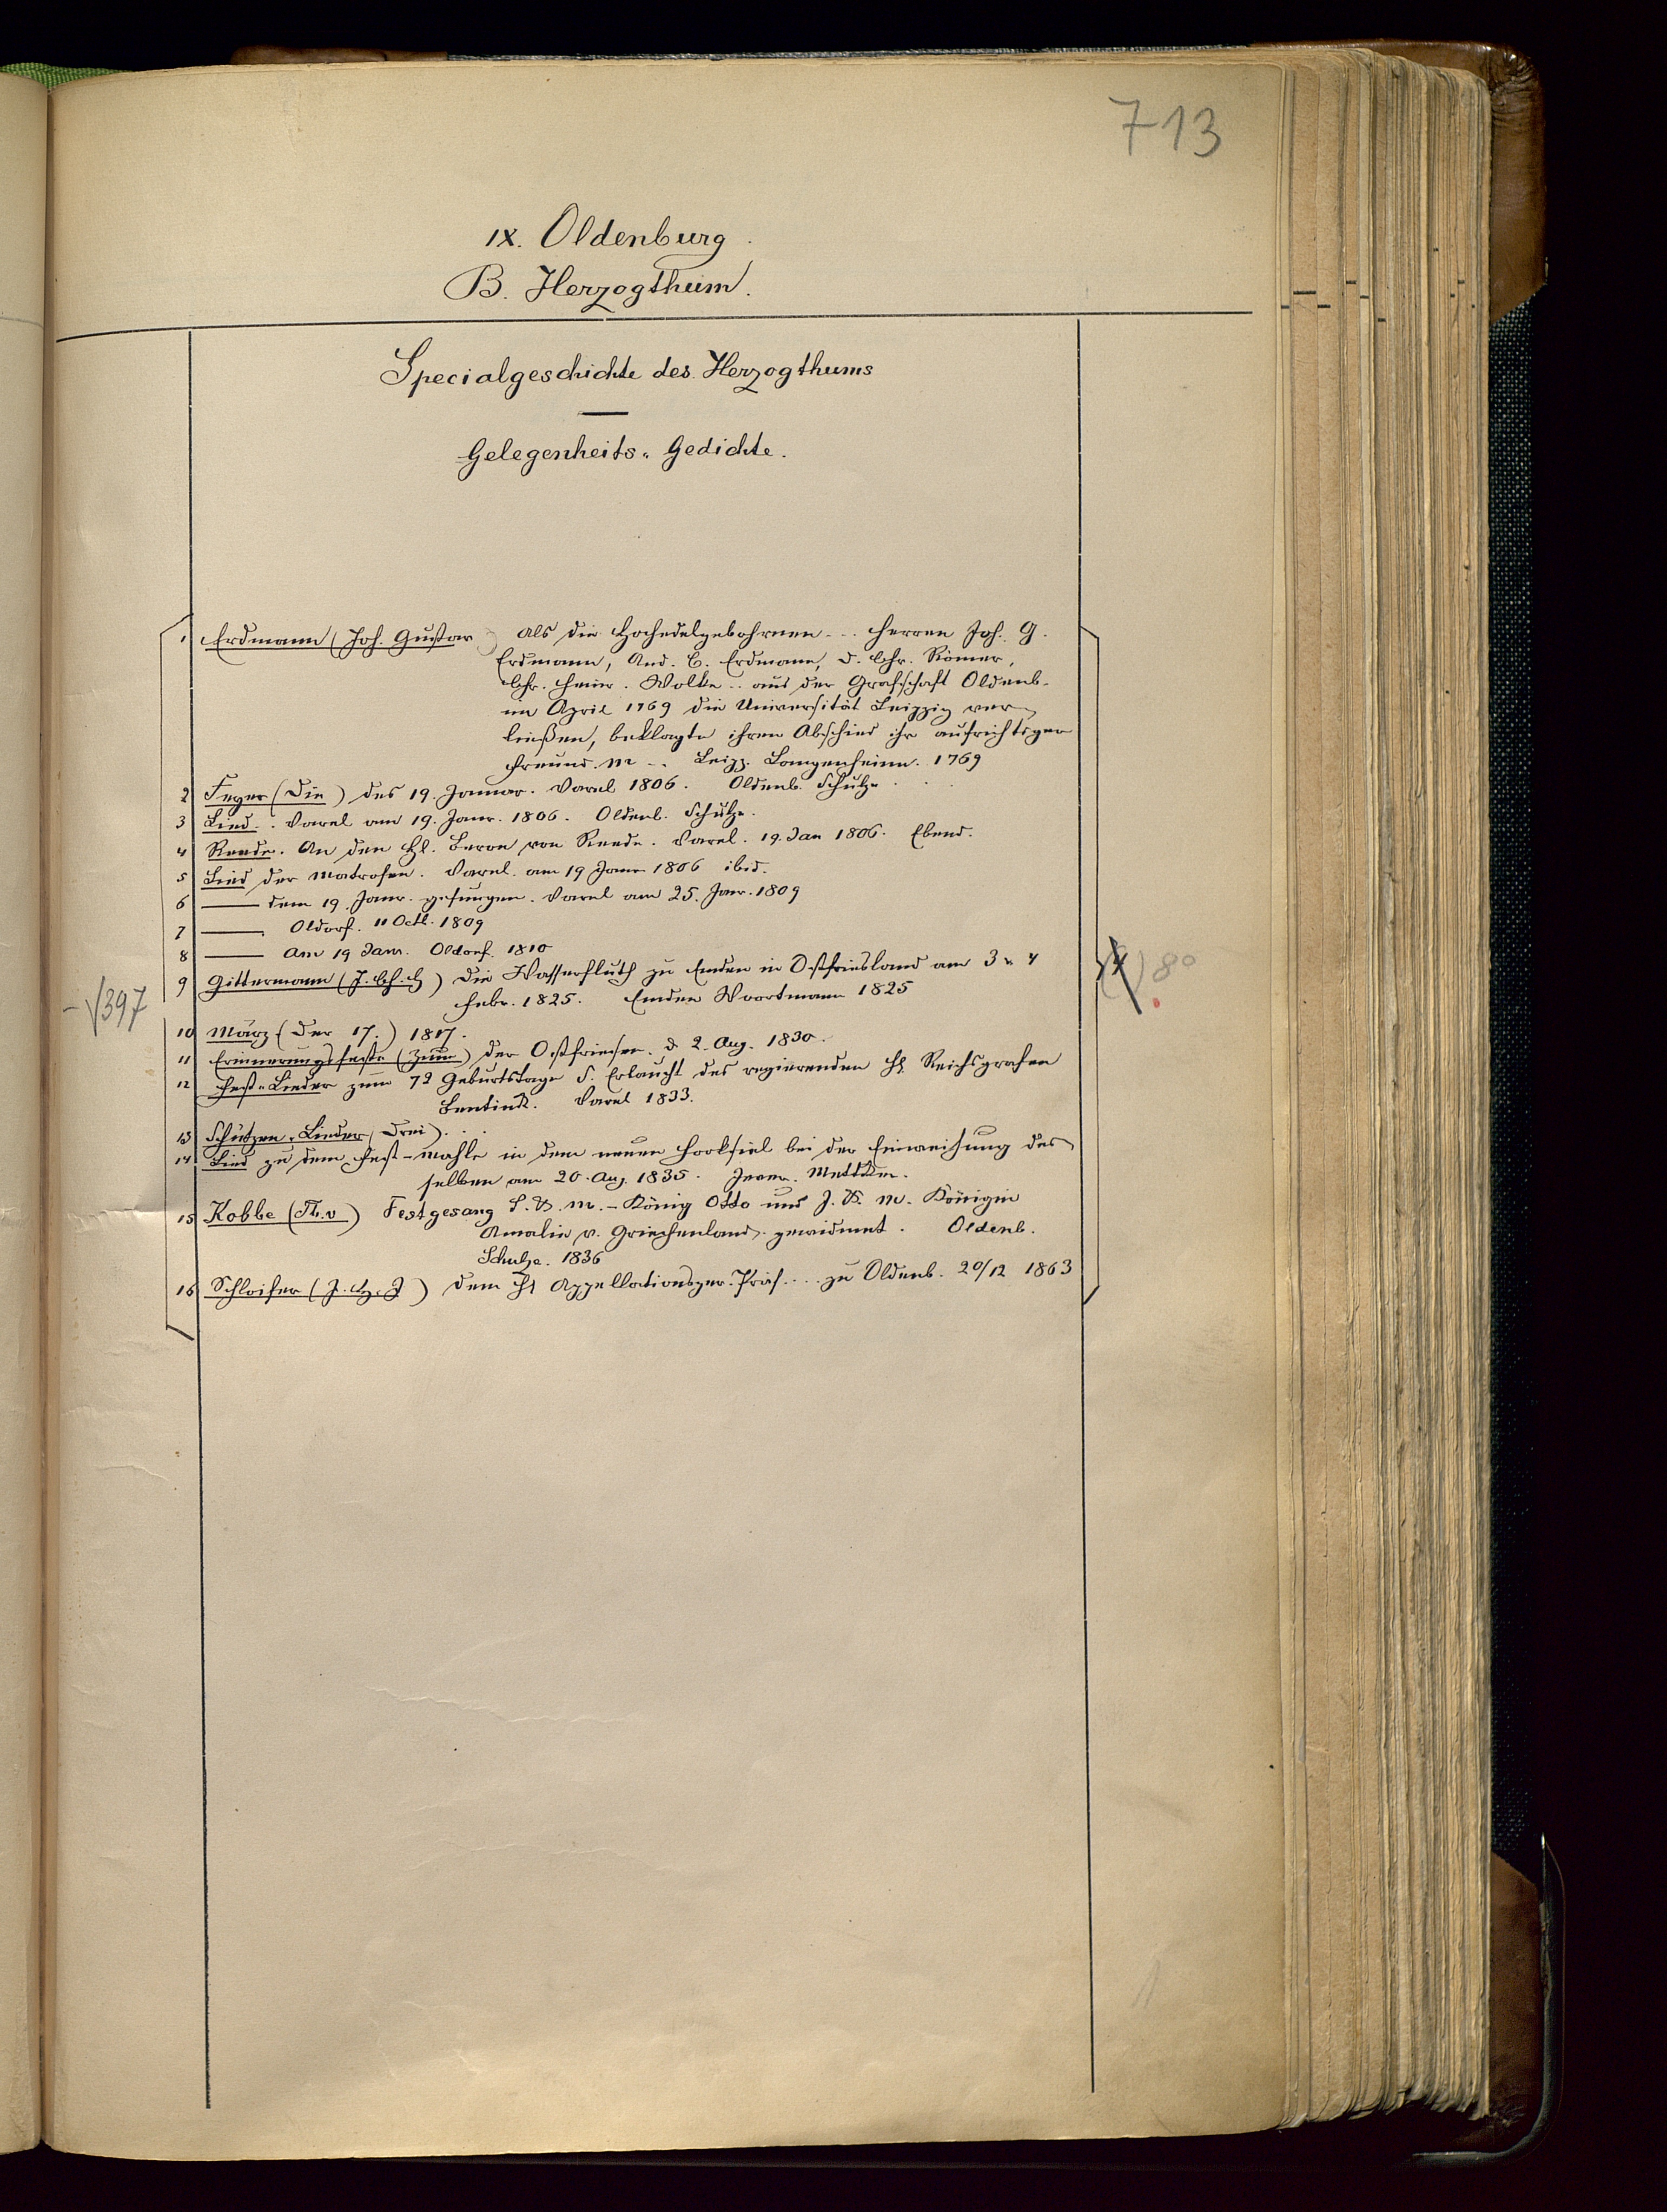 713
IX. Oldenburg.
B. Herzogthum.
Specialgeschichte des Herzogthums
Gelegenheits-Gedichte.
1 Erdmann (Joh. Gustav) Als die Hochedelgebohrnen... Herren Joh. G.
Erdmann, And. C. Erdmann, d. Chr. Römer,
Chr. Heinr. Wolke.. aus der Grafschaft Oldenb.
im April 1769 die Universität Leipzig ver-
ließen, beklagte ihren Abschied ihr aufrichtiger
Freund. M... Leipz. Langenheim. 1769
2 Feyer (Die) des 19. Januar. Varel 1806. Oldenb. Schulze.
3 Lied.. Varel am 19. Janr. 1806. Oldenb. Schulze.
4 Reede. An den H. Baron von Reede. Varel. 19. Jan 1806. Ebend.
5 Lied der Matrosen. Varel. am 19 Janr 1806 ibid.
6 — dem 19. Janr. gesungen. Varel am 25. Janr. 1809
7 — Oldorf. 11 Octb. 1809
8 — Am 19 Janr. Oldorf. 1810
9 Gittermann (J. Ch. H) Die Wasserfluth zu Emden in Ostfriesland am 3 u. 4
Febr. 1825. Emden Woortmann 1825
-√397
8°
10 März (Der 17.) 1817.
11 Erinnerungsfeste (Zum) der Ostfriesen. d 2. Aug. 1830.
12 Fest-Lieder zum 72 Geburtstage S. Erlaucht des regierenden H. Reichsgrafen
Bentinck. Varel 1833.
13 Schützen-Lieder (Drei)...
14 Lied zu dem Fest-Mahle in dem neuen Hooksiel bei der Einweihung des
selben am 20. Aug. 1835. Jever. Mettcker.
15 Kobbe (Th. v) Festgesang S. K. M. - König Otto und J. K. M. Königin
Amalie v. Griechenland gewidmet. Oldenb.
Schulze. 1836
16 Schloifer (J. H. J) Dem H Appellationsger. Präs.... zu Oldenb. 20/12 1863